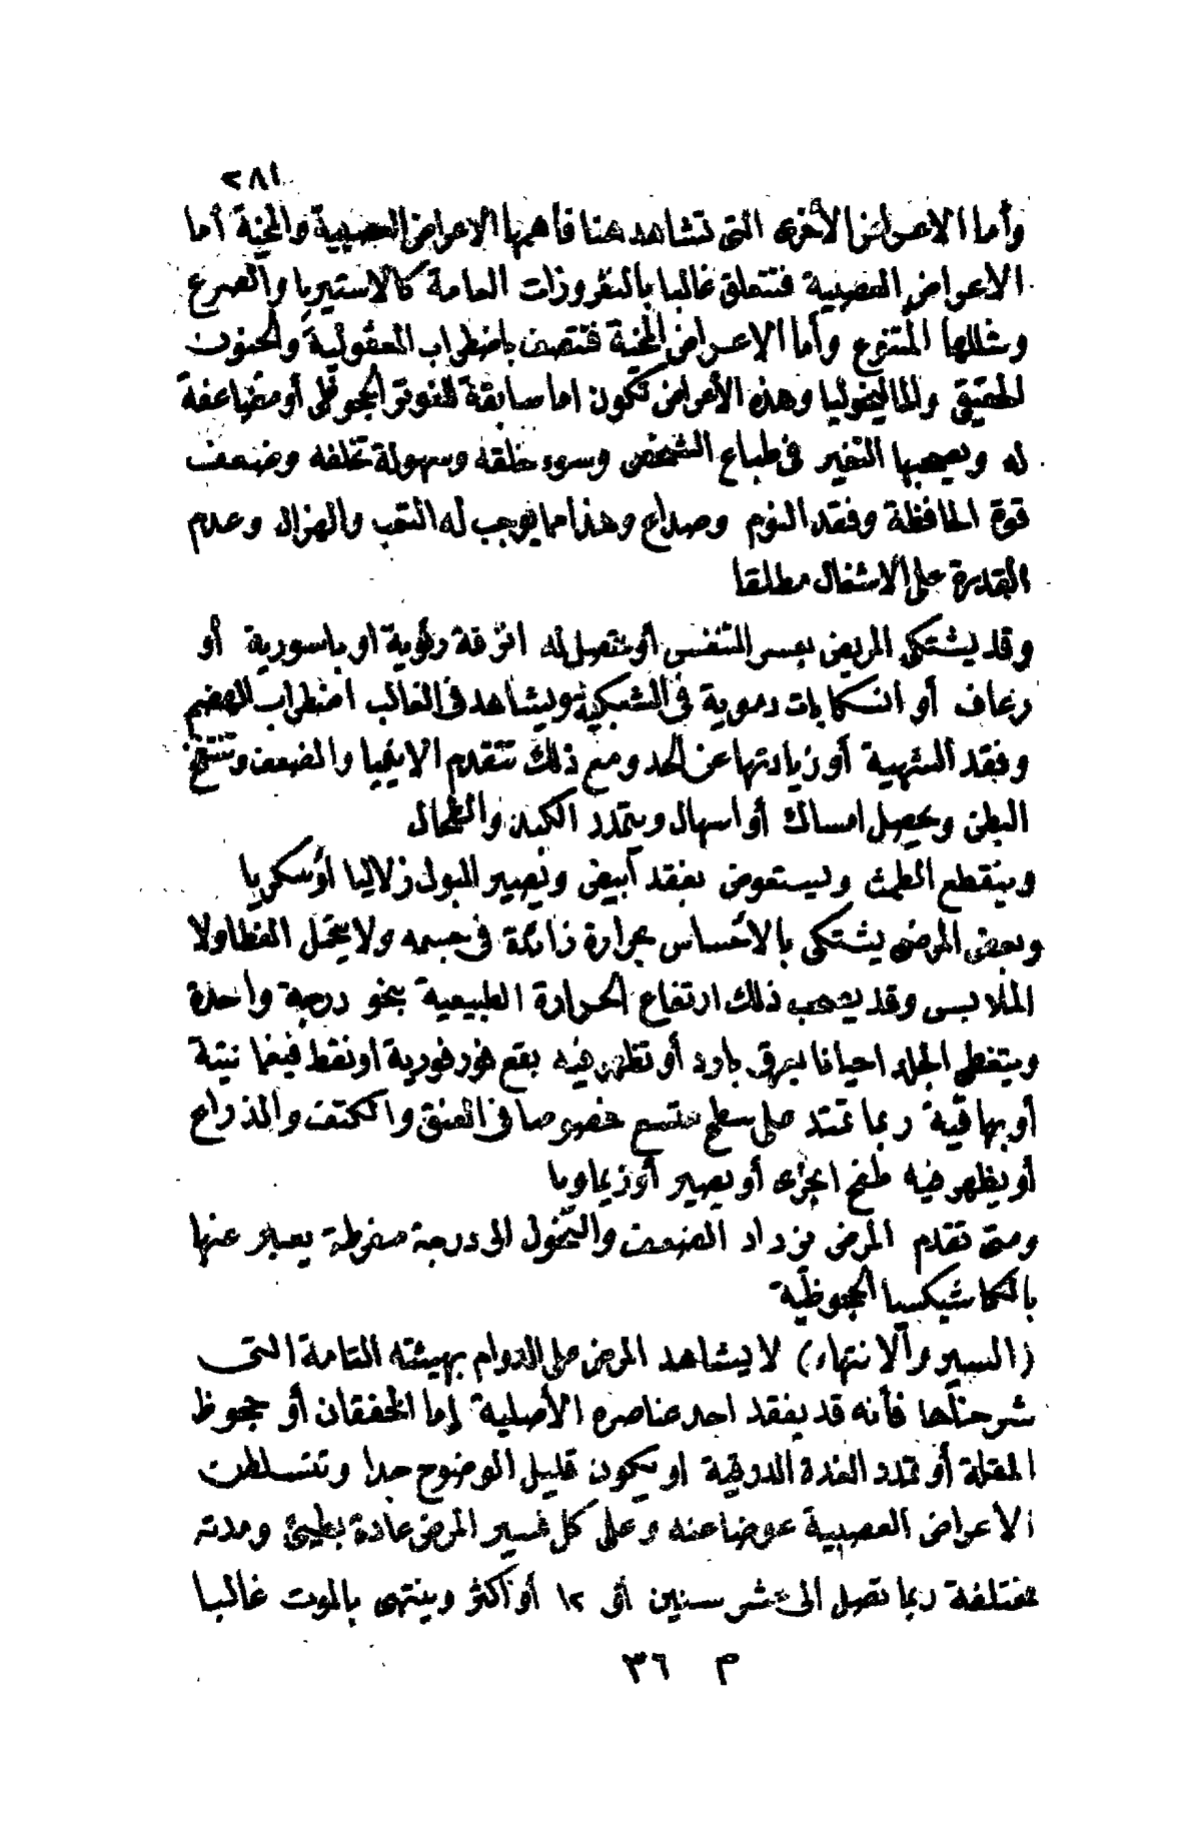 ٢٨١
وأما الاعراض الأخرى التى تشاهد هنا فأهمها الاعراض العصبية والمخية أما
الاعراض العصبية فتتعلق غالبا بالنفروزات العامة كالاستيريا والصرع
وشللها المتنوع وأما الاعراض المخية فتتصف باضطراب العقولية والجنون
الحقيقى والماليخوليا وهذه الأعراض تكون اما سابقة للغوتر الجحوظى أو مضاعفة
له ويصحبها التغير فى طباع الشخص وسوء خلقه وسهولة تخلفه وضعف
قوة الحافظة وفقد النوم وصداع وهذا مما يوجب له التعب والهزال وعدم
القدرة على الاشغال مطلقا
وقد يشتكى المريض بعسر التنفس أو تحصل له انزفة رئوية او باسورية أو
رعاف أو انسكابات دموية فى الشبكية ويشاهد فى الغالب اضطراب الهضم
وفقد الشهية أو زيادتها عن الحد ومع ذلك تتقدم الانيميا والضعف وتنتفخ
البطن ويحصل امساك أو اسهال ويتمدد الكبد والطحال
وينقطع الطمث ويستعوض بفقد أبيض ويصير البول زلاليا أو سكريا
وبعض المرضى يشتكى بالأحساس بحرارة زائدة فى جسمه ولا يتحمل الغطا ولا
الملابس وقد يصحب ذلك ارتفاع الحرارة الطبيعية بنحو درجة واحدة
ويتغطى الجلد احيانا بعرق بارد أو تظهر فيه بقع فورفورية او نقط فيغمانيتة
أو بهاقية ربما تمتد على سطح متسع خصوصا فى العنق والكتف والذراع
أو يظهر فيه طفح انجرى أو يصير أوزيماويا
ومتى تقدم المرض يزداد الضعف والنحول الى درجة مفرطة يعبر عنها
بالكاشيكسيا الجحوظية
(السير والانتهاء) لا يشاهد المرض على الدوام بهيئته التامة التى
شرحناها فأنه قد يفقد احد عناصره الأصلية إما الخفقان أو جحوظ
المقلة أو تمدد الغدة الدرقية او يكون قليل الوضوح جدا وتتسلطن
الاعراض العصبية عوضا عنه وعلى كل فسير المرض عادة بطيئ ومدته
مختلفة ربما تصل الى عشر سنين أو ١٢ أو أكثر وينتهى بالموت غالبا
م ٣٦